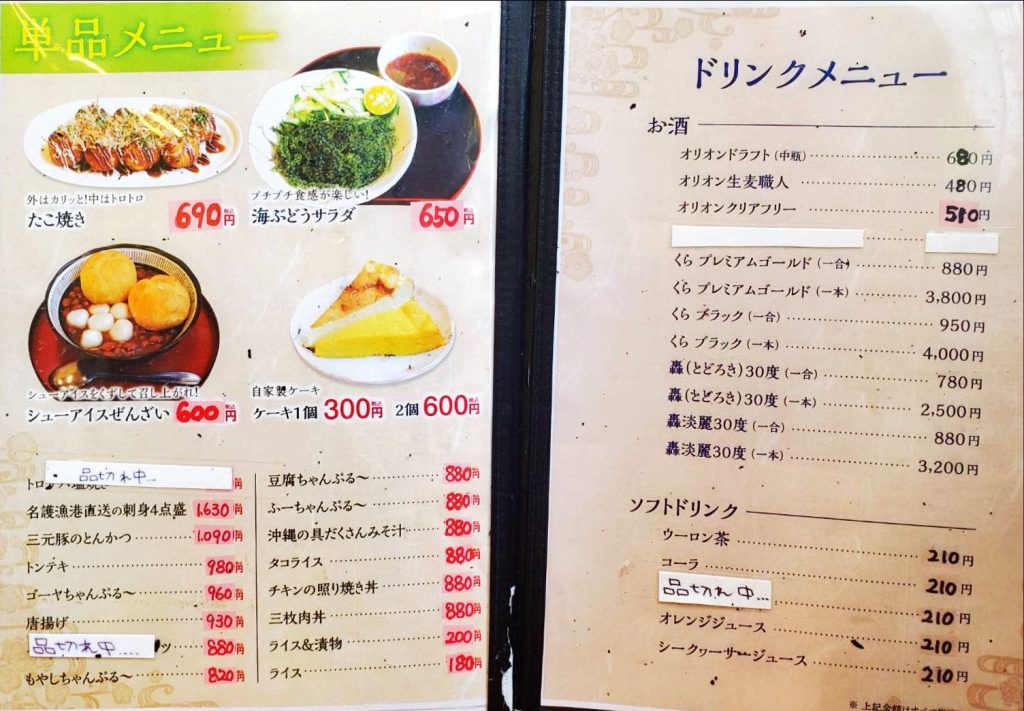 単品メニュー
外はカリッと!中はトロトロ
たこ焼き 690円
プチプチ食感が楽しい!
海ぶどうサラダ 650円
シューアイスをくずして召し上がれ!
シューアイスぜんざい 600円
自家製ケーキ
ケーキ1個 300円 2個 600円
品切れ中…
円
名護漁港直送の刺身4点盛 1.630円
三元豚のとんかつ 1.090円
トンテキ 980円
ゴーヤちゃんぷる〜 960円
唐揚げ 930円
品切れ中…. ッ 880円
もやしちゃんぷる〜 820円
豆腐ちゃんぷる〜 880円
ふーちゃんぷる〜 880円
沖縄の具だくさんみそ汁 880円
タコライス 880円
チキンの照り焼き丼 880円
三枚肉丼 880円
ライス&漬物 200円
ライス 180円
ドリンクメニュー
お酒
オリオンドラフト(中瓶) 680円
オリオン生麦職人 480円
オリオンクリアフリー 510円
くら プレミアムゴールド(一合) 880円
くら プレミアムゴールド(一本) 3,800円
くら ブラック(一合) 950円
くら ブラック(一本) 4,000円
轟(とどろき)30度(一合) 780円
轟(とどろき)30度(一本) 2,500円
轟淡麗30度(一合) 880円
轟淡麗30度(一本) 3,200円
ソフトドリンク
ウーロン茶 210円
コーラ 210円
品切れ中… 210円
オレンジジュース 210円
シークヮーサージュース 210円